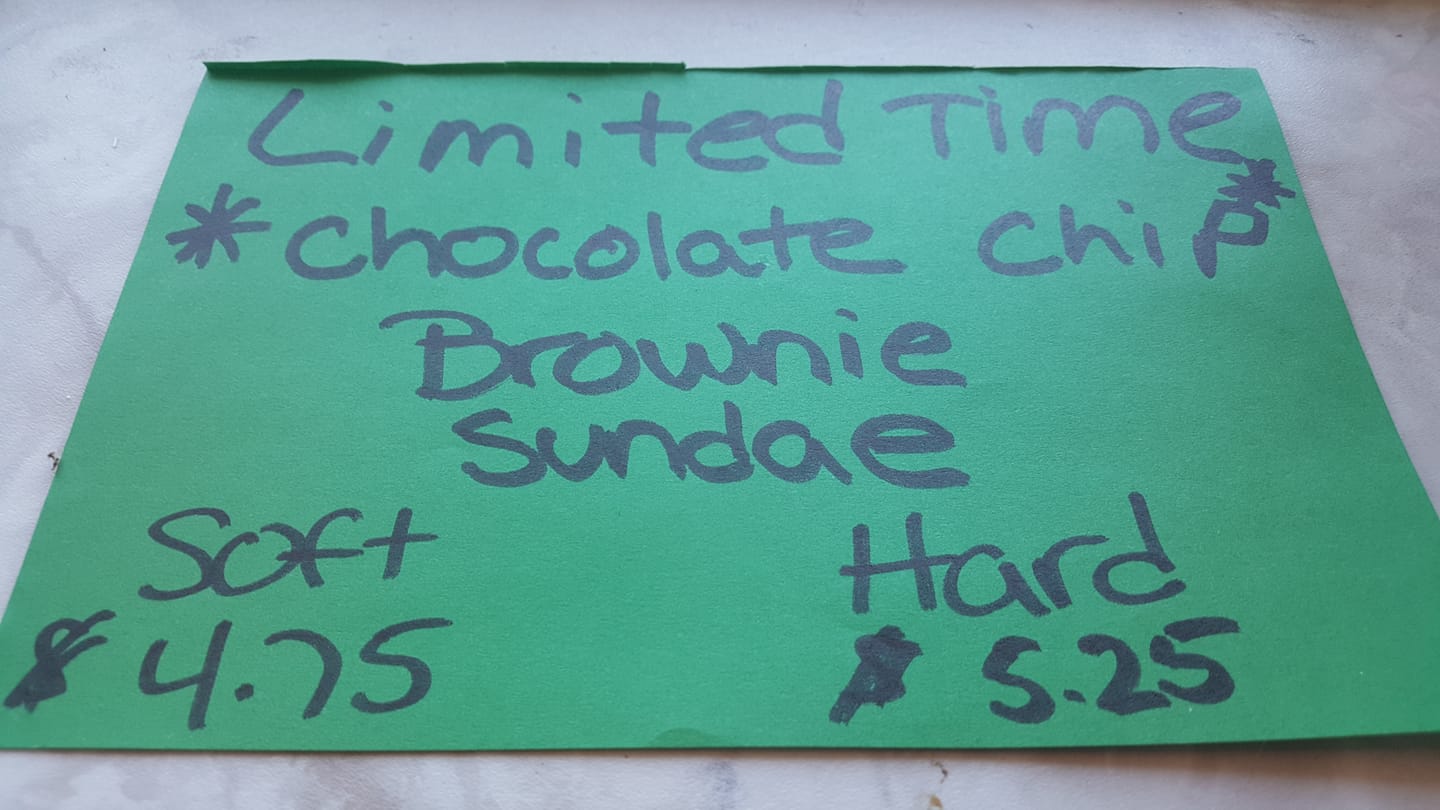 Limited Time
*chocolate chip*
Brownie
Sundae
Soft Hard
$ 4.75 $ 5.25